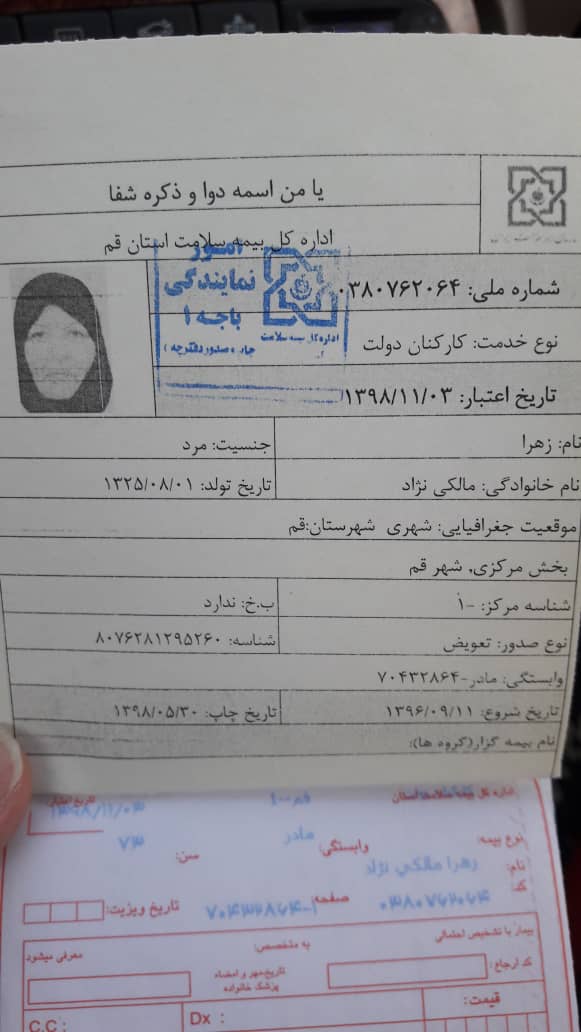 یا من اسمه دوا و ذکره شفا
اداره کل بیمه سلامت استان قم
امور
نمایندگی
باجه ۱
اداره کل بیمه سلامت
شماره ملی: ۰۳۸۰۷۶۲۰۶۴
نوع خدمت: کارکنان دولت
تاریخ اعتبار: ۱۳۹۸/۱۱/۰۳
نام: زهرا جنسیت: مرد
نام خانوادگی: مالکی نژاد تاریخ تولد: ۱۳۲۵/۰۸/۰۱
موقعیت جغرافیایی: شهری شهرستان:قم
بخش مرکزی, شهر قم
شناسه مرکز: -۱ ب.خ: ندارد
نوع صدور: تعویض شناسه: ۸۰۷۶۲۸۱۲۹۵۲۶۰
وابستگی: مادر-۷۰۴۳۲۸۶۴
تاریخ شروع: ۱۳۹۶/۰۹/۱۱ تاریخ چاپ: ۱۳۹۸/۰۵/۳۰
نام بیمه گزار(گروه ها):
اداره کل بیمه سلامت استان قم تاریخ اعتبار ۱۳۹۸/۱۱/۰۳
نوع بیمه: وابستگی: مادر سن: ۷۳
نام: زهرا مالکی نژاد
کد: ۰۳۸۰۷۶۲۰۶۴ صفحه: ۱-۷۰۴۳۲۸۶۴ تاریخ ویزیت:
بیمار با تشخیص احتمالی به متخصص: معرفی میشود
کد ارجاع: تاریخ مهر و امضاء
پزشک خانواده
قیمت: Dx : C.C :